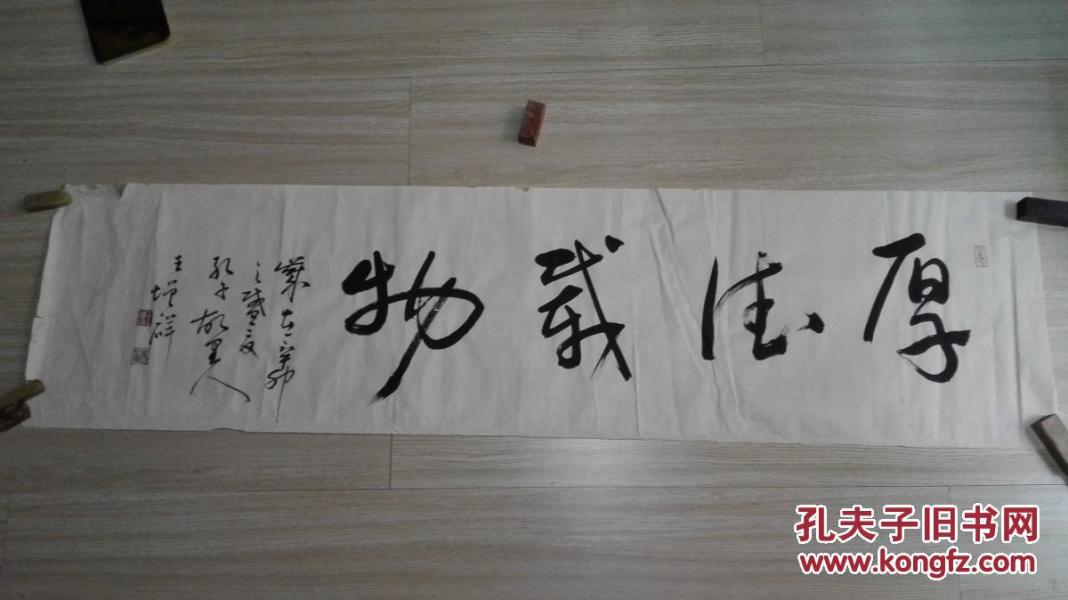 厚德载物
岁在辛卯
之盛夏
孔子故里人
王增祥
孔夫子旧书网
www.kongfz.com